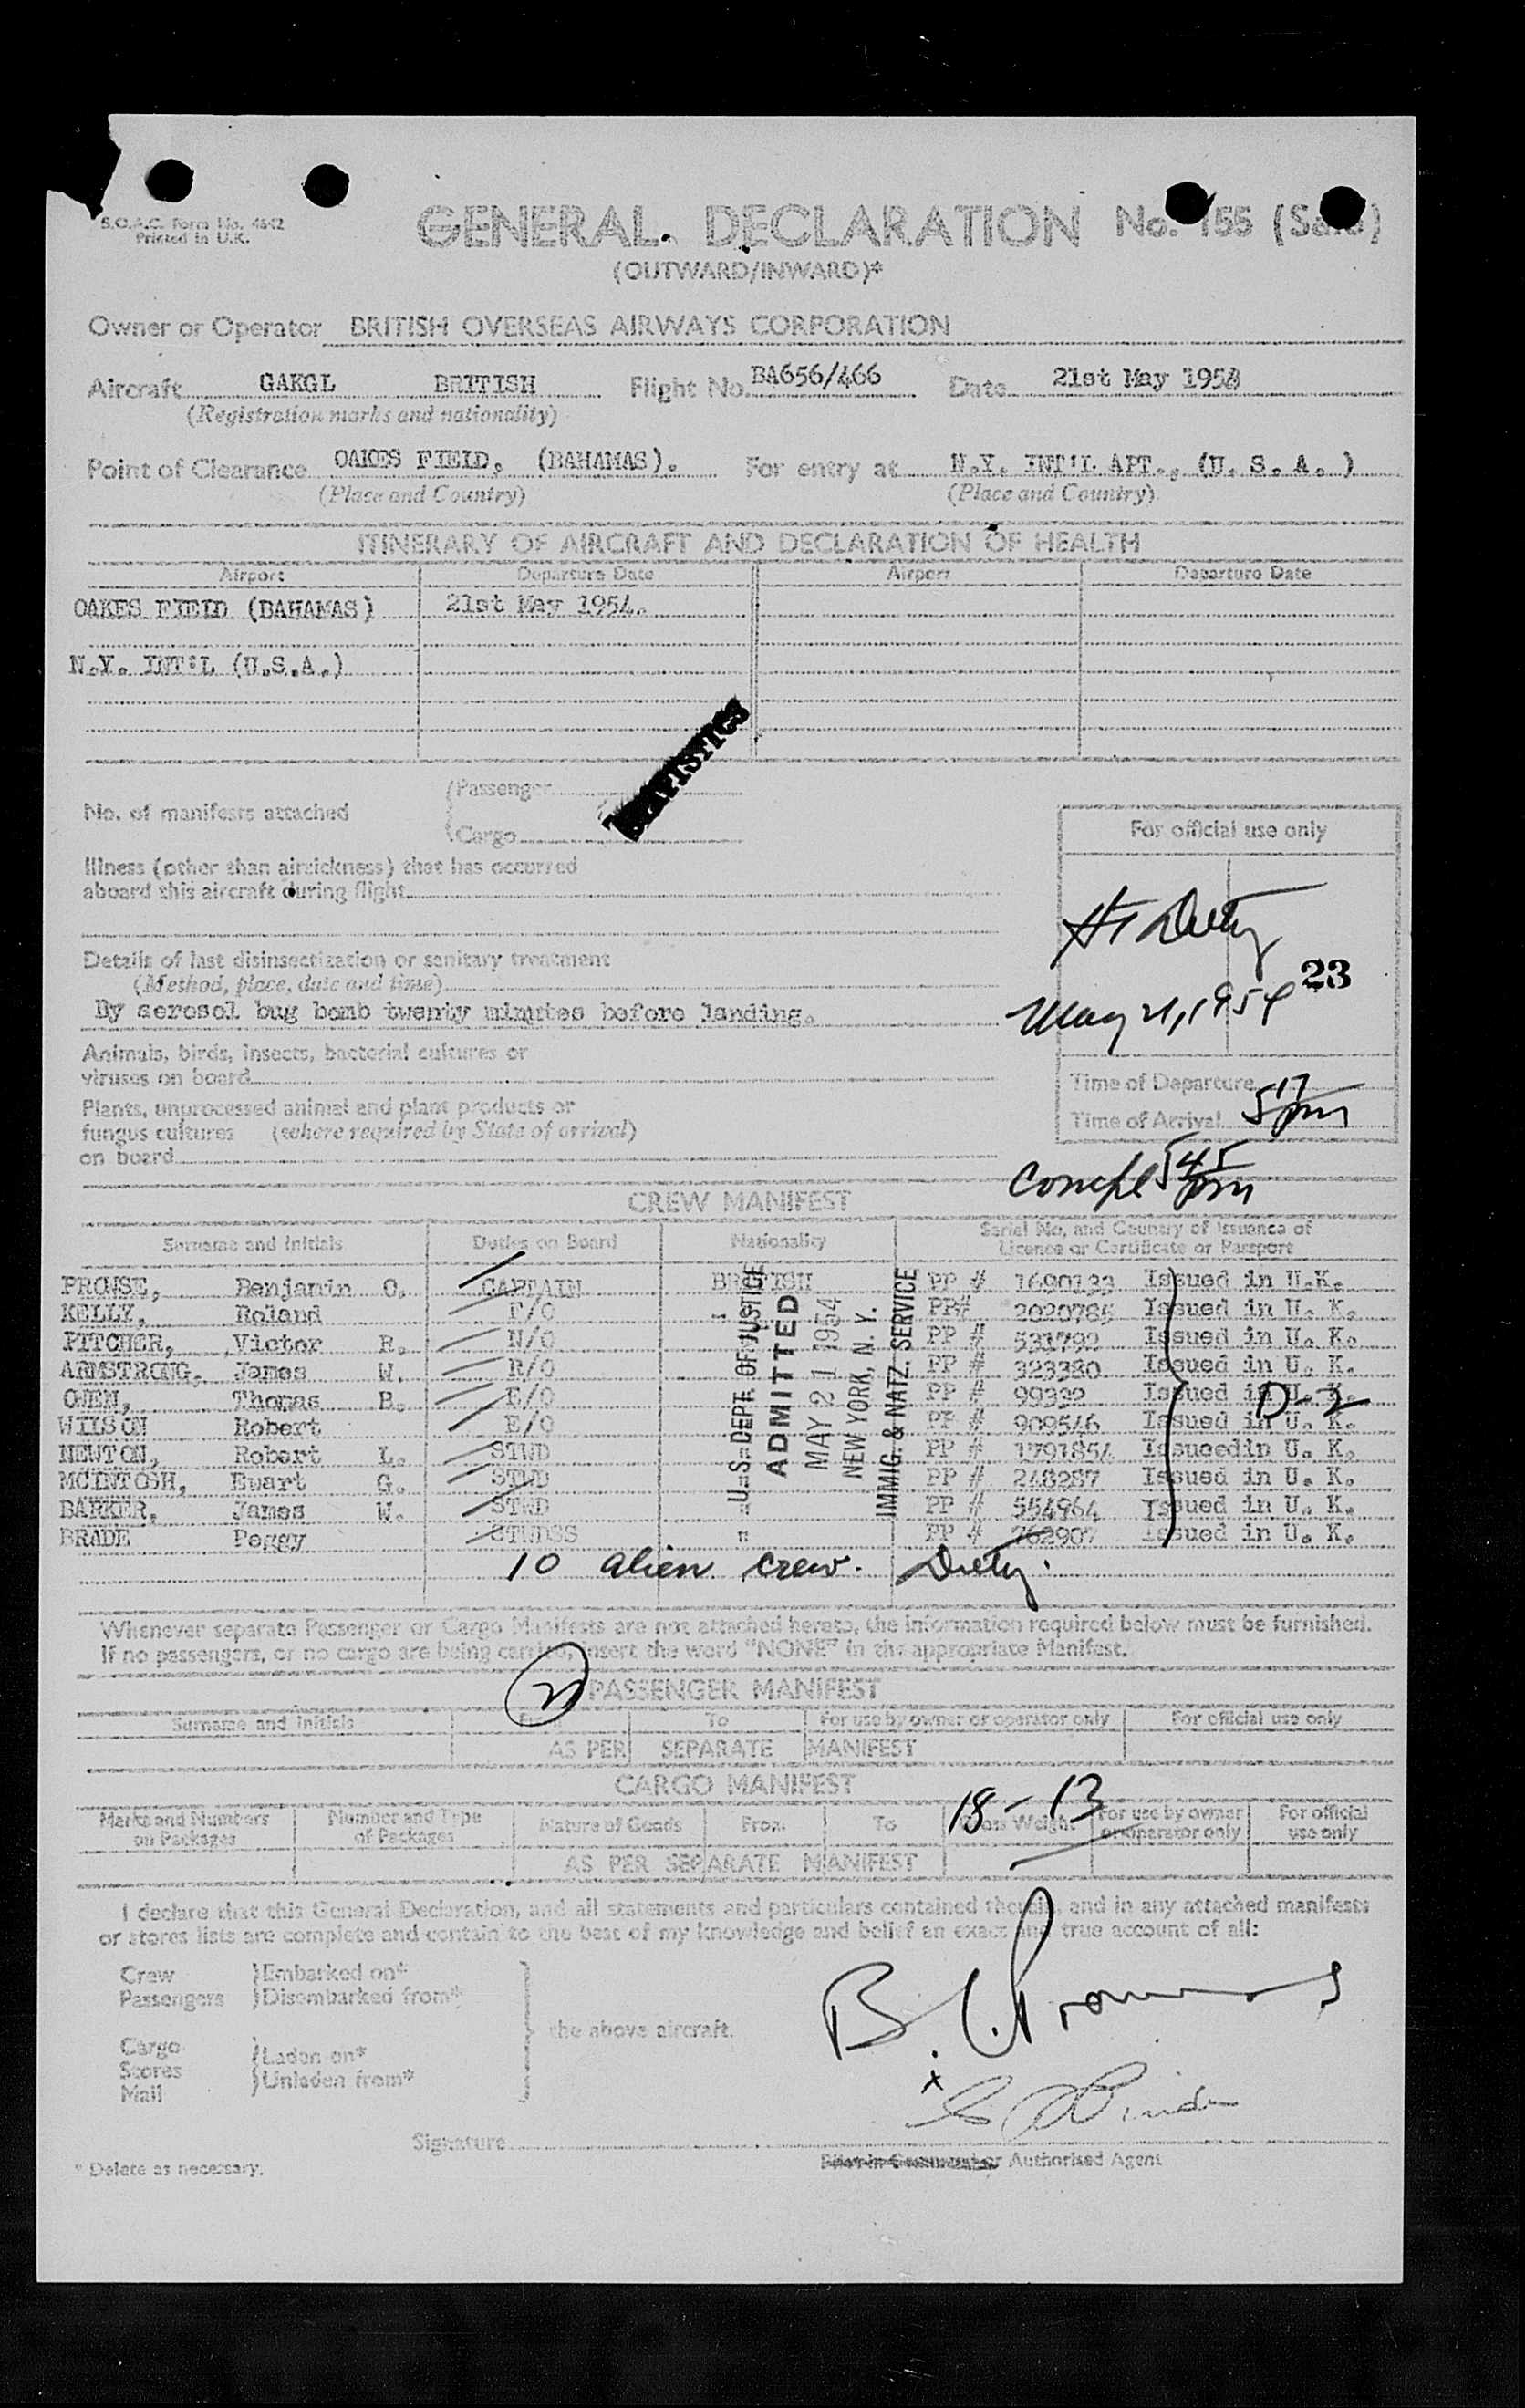 B.O.A.C. Form No. 4642
Printed in U.K.
GENERAL DECLARATION No. 155
(OUTWARD/INWARD)*
Owner or Operator BRITISH OVERSEAS AIRWAYS CORPORATION
Aircraft GAKGL BRITISH Flight No. BA656/466 Date 21st May 1954
(Registration marks and nationality)
Point of Clearance OAKES FIELD, (BAHAMAS). For entry at N.Y. INT'L APT., (U. S. A. )
(Place and Country) (Place and Country)
ITINERARY OF AIRCRAFT AND DECLARATION OF HEALTH
Airport Departure Date Airport Departure Date
OAKES FIELD (BAHAMAS) 21st May 1954.
N.Y. INT'L (U.S.A.)
STATISTICS
No. of manifests attached
Passenger
Cargo
For official use only
Illness (other than airsickness) that has occurred
aboard this aircraft during flight
Details of last disinsectization or sanitary treatment
(Method, place, date and time)
23
By aerosol bug bomb twenty minutes before landing.
May 21, 1954
Animals, birds, insects, bacterial cultures or
viruses on board
Time of Departure
Plants, unprocessed animal and plant products or
fungus cultures (where required by State of arrival)
on board
Time of Arrival 5 17 pm
Compl 5 45 pm
CREW MANIFEST
Surname and initials Duties on Board Nationality Serial No. and Country of Issuance of
Licence or Certificate or Passport
PROWSE, Benjamin O. CAPTAIN BRITISH PP # 1690133 Issued in U.K.
KELLY, Roland F/O " PP# 2020785 Issued in U. K.
PITCHER, Victor R. N/O PP # 531792 Issued in U. K.
ARMSTRONG, James W. R/O PP # 323380 Issued in U. K.
OWEN, Thomas B. E/O PP # 99332 Issued in U. K.
D-2
WILSON Robert E/O PP # 909546 Issued in U. K.
NEWTON, Robert L. STWD PP # 1791854 Issuedin U. K.
MCINTOSH, Ewart G. STWD PP # 248287 Issued in U. K.
BARKER, James W. STWD " PP # 554964 Issued in U. K.
BRADE Peggy STWDSS " PP # 762907 Issued in U. K.
U. S. DEPT. OF JUSTICE
ADMITTED
MAY 21 1954
NEW YORK, N. Y.
IMMIG. & NATZ. SERVICE
10 alien crew.
Whenever separate Passenger or Cargo Manifests are not attached hereto, the information required below must be furnished.
If no passengers, or no cargo are being carried, insert the word "NONE" in the appropriate Manifest.
PASSENGER MANIFEST
Surname and initials From To For use by owner or operator only For official use only
AS PER SEPARATE MANIFEST
CARGO MANIFEST
18-13
Marks and Numbers on Packages Number and Type of Packages Nature of Goods From To Gross Weight For use by owner or operator only For official use only
AS PER SEPARATE MANIFEST
I declare that this General Declaration, and all statements and particulars contained therein, and in any attached manifests
or stores lists are complete and contain to the best of my knowledge and belief an exact and true account of all:
Crew
Passengers
Embarked on*
Disembarked from*
the above aircraft.
Cargo
Stores
Mail
Laden on*
Unladen from*
x
Signature
Pilot in Command or Authorised Agent
* Delete as necessary.